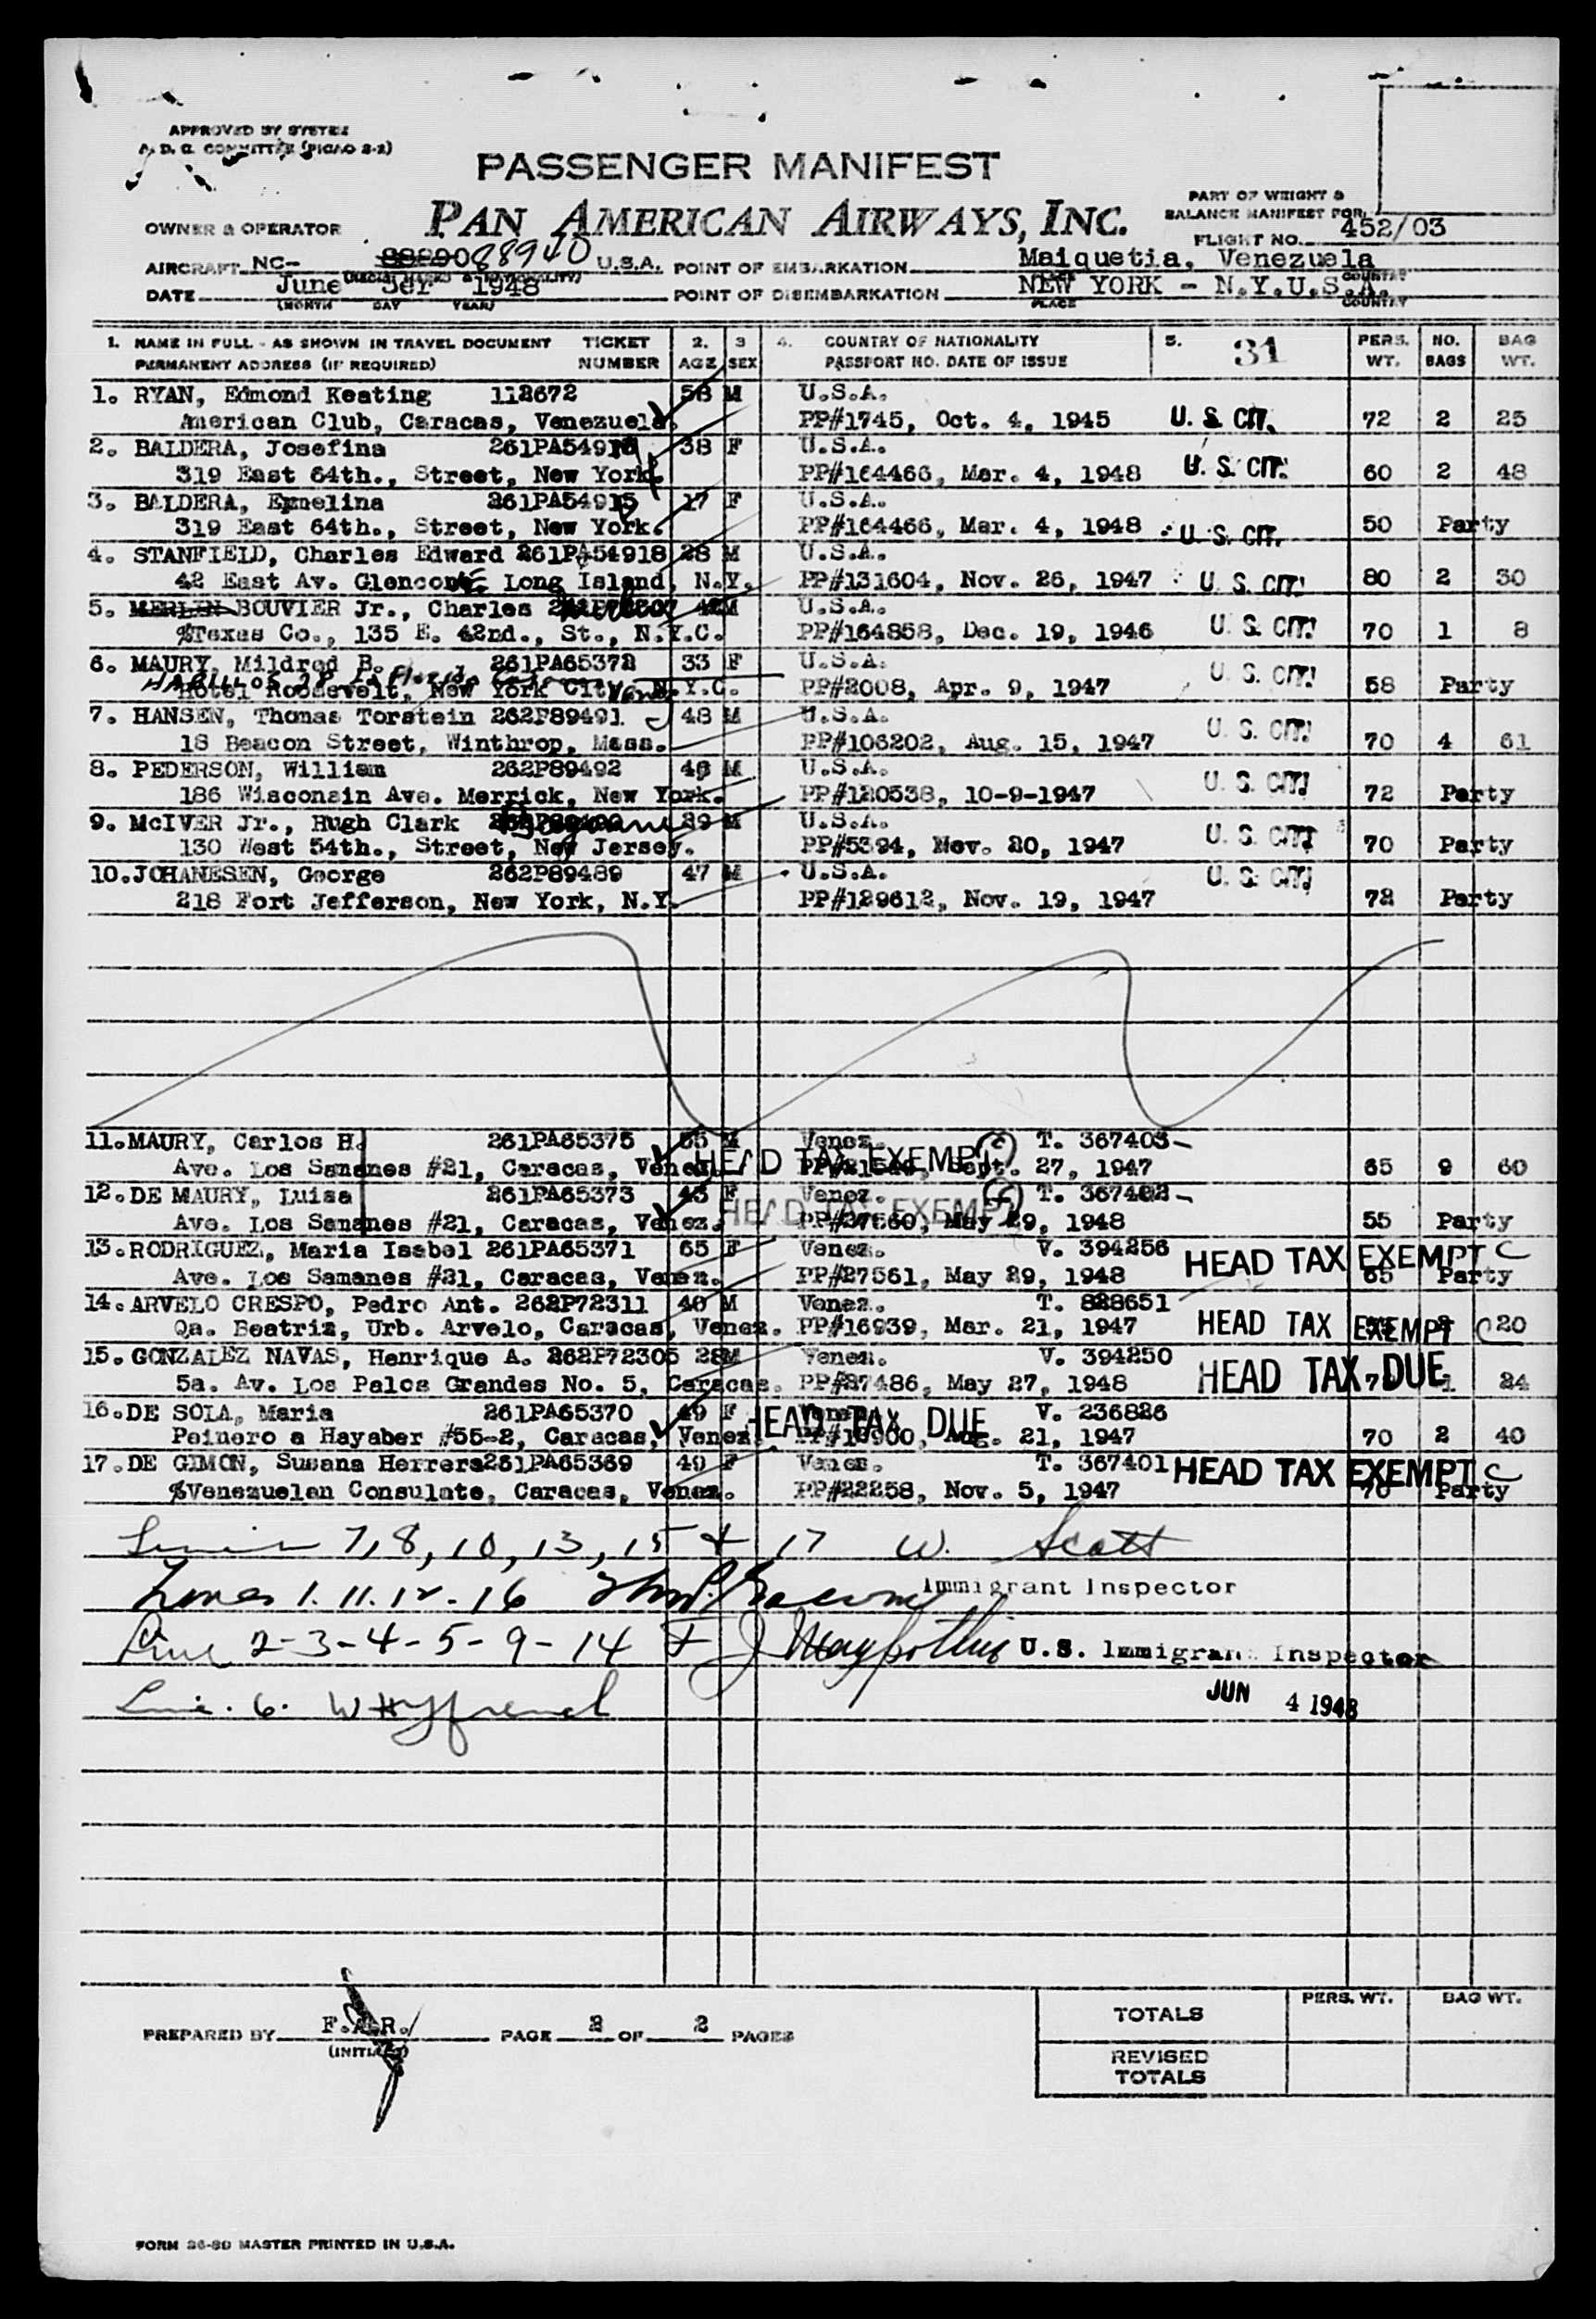 APPROVED BY SYSTEM
A. D. C. COMMITTEE (PICAO 2-2)
PASSENGER MANIFEST
PAN AMERICAN AIRWAYS, INC.
PART OF WEIGHT &
BALANCE MANIFEST FOR
OWNER & OPERATOR
FLIGHT NO. 452/03
AIRCRAFT NC- 88940 U.S.A. POINT OF EMBARKATION Maiquetia, Venezuela
DATE June 3er 1948 POINT OF DISEMBARKATION NEW YORK - N.Y.U.S.A.
(MONTH DAY YEAR) PLACE COUNTRY
1. NAME IN FULL - AS SHOWN IN TRAVEL DOCUMENT TICKET 2. 3 4. COUNTRY OF NATIONALITY 5. 31 PERS. NO. BAG
PERMANENT ADDRESS (IF REQUIRED) NUMBER AGE SEX PASSPORT NO. DATE OF ISSUE WT. BAGS WT.
1. RYAN, Edmond Keating 112672 58 M U.S.A.
American Club, Caracas, Venezuela. PP#1745, Oct. 4, 1945 U. S. CIT. 72 2 25
2. BALDERA, Josefina 38 F U.S.A.
319 East 64th., Street, New York. PP#164466, Mar. 4, 1948 U. S. CIT. 60 2 48
3. BALDERA, Emelina 261PA54915 17 F U.S.A.
319 East 64th., Street, New York. PP#164466, Mar. 4, 1948 U. S. CIT. 50 Party
4. STANFIELD, Charles Edward 261PA54918 28 M U.S.A.
42 East Av. Glencove Long Island, N.Y. PP#131604, Nov. 26, 1947 U. S. CIT. 80 2 30
5. BOUVIER Jr., Charles M U.S.A.
%Texas Co., 135 E. 42nd., St., N.Y.C. PP#164858, Dec. 19, 1946 U. S. CIT. 70 1 8
6. MAURY, Mildred B. 261PA65372 33 F U.S.A.
Hotel Roosevelt, New York City, N.Y.C. PP#2008, Apr. 9, 1947 U. S. CIT. 58 Party
7. HANSEN, Thomas Torstein 262P89491 48 M U.S.A.
18 Beacon Street, Winthrop, Mass. PP#106202, Aug. 15, 1947 U. S. CIT. 70 4 61
8. PEDERSON, William 262P89492 46 M U.S.A.
186 Wisconsin Ave. Merrick, New York. PP#120538, 10-9-1947 U. S. CIT. 72 Party
9. McIVER Jr., Hugh Clark 29 M U.S.A.
130 West 54th., Street, New Jersey. PP#5394, Nov. 20, 1947 U. S. CIT. 70 Party
10. JOHANESEN, George 262P89489 47 M U.S.A.
218 Fort Jefferson, New York, N.Y. PP#129612, Nov. 19, 1947 U. S. CIT. 72 Party
11. MAURY, Carlos H. 261PA65375 55 M Venez. T. 367403
Ave. Los Samanes #21, Caracas, Venez. HEAD TAX EXEMPT Sept. 27, 1947 65 9 60
12. DE MAURY, Luisa 261PA65373 45 F Venez. T. 367402
Ave. Los Samanes #21, Caracas, Venez. HEAD TAX EXEMPT PP#27560, May 29, 1948 55 Party
13. RODRIGUEZ, Maria Isabel 261PA65371 65 F Venez. V. 394256 HEAD TAX EXEMPT C
Ave. Los Samanes #21, Caracas, Venez. PP#27561, May 29, 1948 65 Party
14. ARVELO CRESPO, Pedro Ant. 262P72311 40 M Venez. T. 828651
Qa. Beatriz, Urb. Arvelo, Caracas, Venez. PP#16939, Mar. 21, 1947 HEAD TAX EXEMPT C 20
15. GONZALEZ NAVAS, Henrique A. 262P72305 28 M Venez. V. 394250
5a. Av. Los Palos Grandes No. 5, Caracas. PP#27486, May 27, 1948 HEAD TAX DUE 1 24
16. DE SOLA, Maria 261PA65370 49 F HEAD TAX DUE V. 236826
Peinero a Hayaber #55-2, Caracas, Venez. Aug. 21, 1947 70 2 40
17. DE GIMON, Susana Herrera 261PA65369 49 F Venez. T. 367401 HEAD TAX EXEMPT C
%Venezuelan Consulate, Caracas, Venez. PP#22258, Nov. 5, 1947 70 Party
7, 8, 10, 13, 15 + 17 W. Scott
Immigrant Inspector
Lines 1. 11. 12 - 16
Line 2-3-4-5-9-14
U.S. Immigrant Inspector
Line. 6.
JUN 4 1948
PERS. WT. BAG WT.
TOTALS
PREPARED BY F.A.R. PAGE 2 OF 2 PAGES
(INITIALS)
REVISED
TOTALS
FORM 26-8D MASTER PRINTED IN U.S.A.